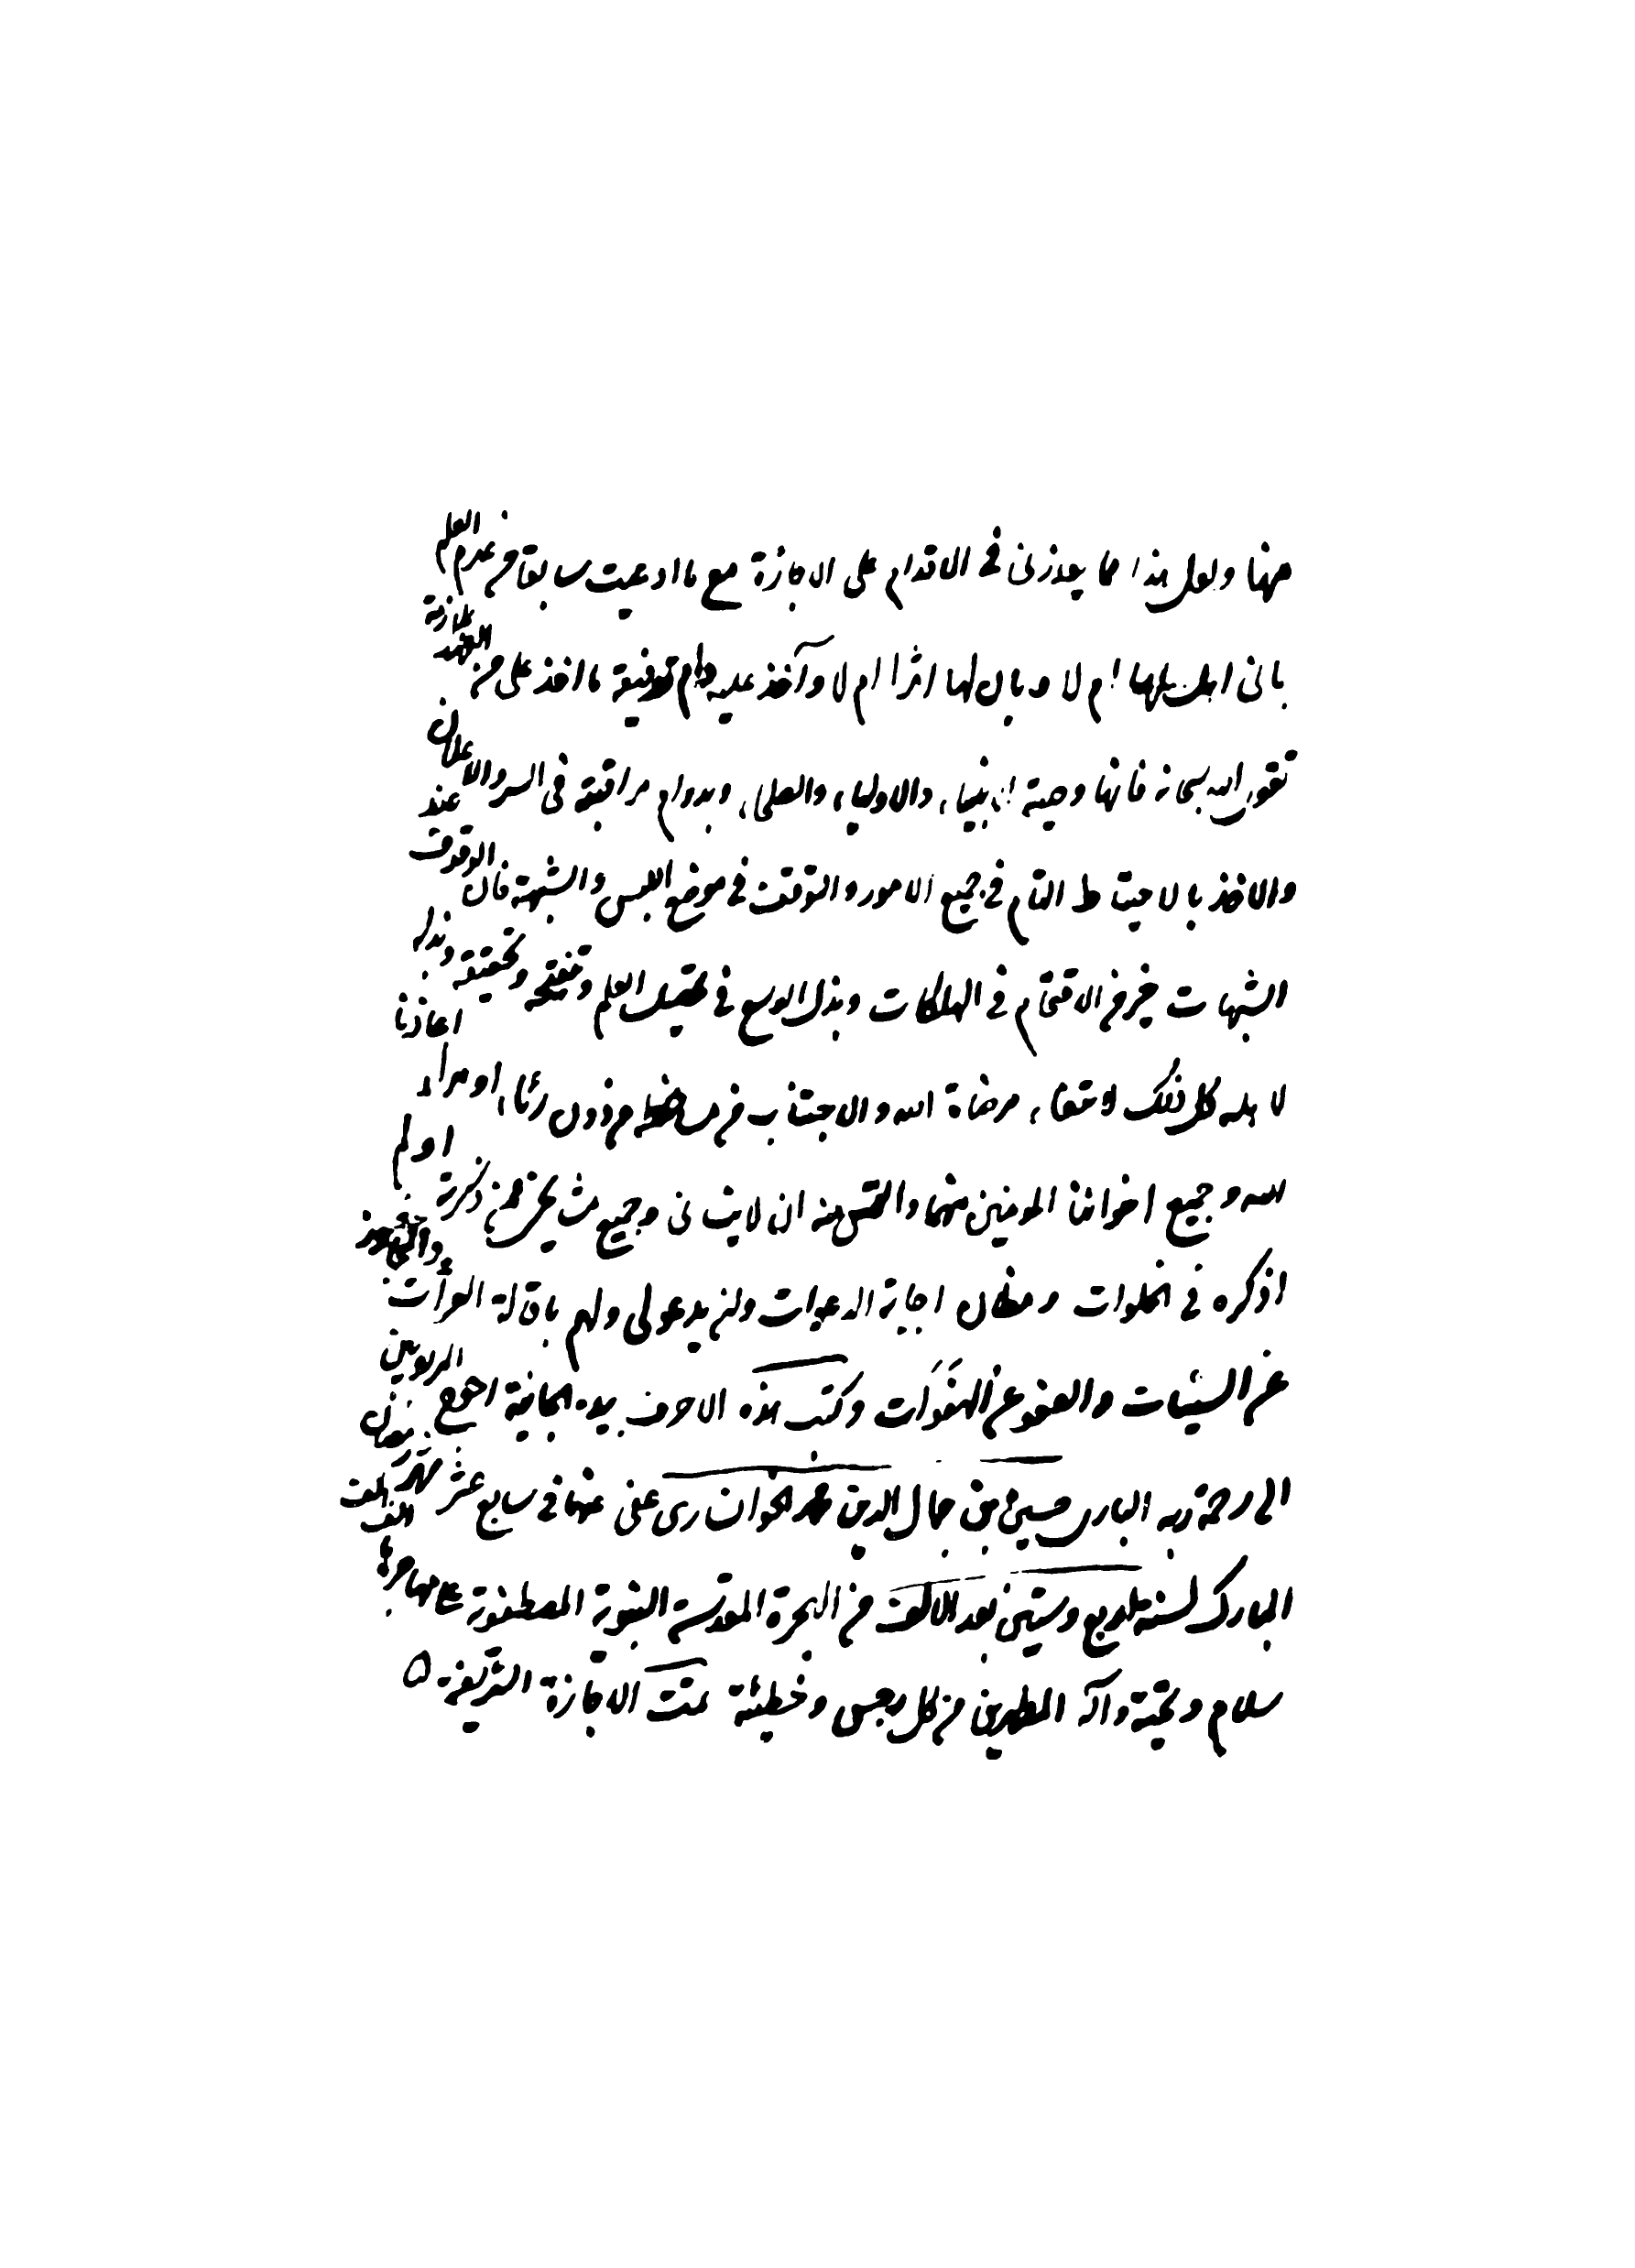 منها ولعل هذا مما يعذرنى فى الاقدام على الاجازة مع ما ادعيت سابقا من عدم العلم
بانى اهل لها ام لا وبان لها اثرا ام لا وآخذ عليه دام توفيقه ما اخذ على من العهد بملازمة
تقوى الله سبحانه فانها وصية الانبياء والاولياء والصلحاء وبدوام مراقبته فى السر والاعلان
والاخذ بالاحتياط التام فى جميع الامور والتوقف فى موضع اللبس والشبهة فان الوقوف عند
الشبهات خير من الاقتحام فى الهلكات وبذل الوسع فى تحصيل العلم وتنقيحه وتحقيقه وبذله
لاهله كل ذلك لابتغاء مرضاة الله والاجتناب من مساخطه من دون رئاء او مراء اعاذنا
الله وجميع اخواننا المومنين منهما والتمس منه ان لا ينسانى وجميع مشايخى ممن ذكرت او لم
اذكره فى الخلوات ومظان اجابة الدعوات وان يدعو لى ولهم باقالة العثرات والتجاوز
عن السيئات والعفو عن الهفوات وكتب هذه الاحرف بيده الجانية احوج المربوبين
الى رحمة ربه البارى حسين بن جمال الدين محمد الخوانسارى عفى عنهما فى سابع عشر شهر رمضان
المبارك لسنة اربع وستين بعد الالف من الهجرة المقدسة النبوية المصطفوية على مهاجرها الف الف
سلام وتحية وآله المطهرين من كل رجس وخطيئة تمت الاجازة الشريفة ۵